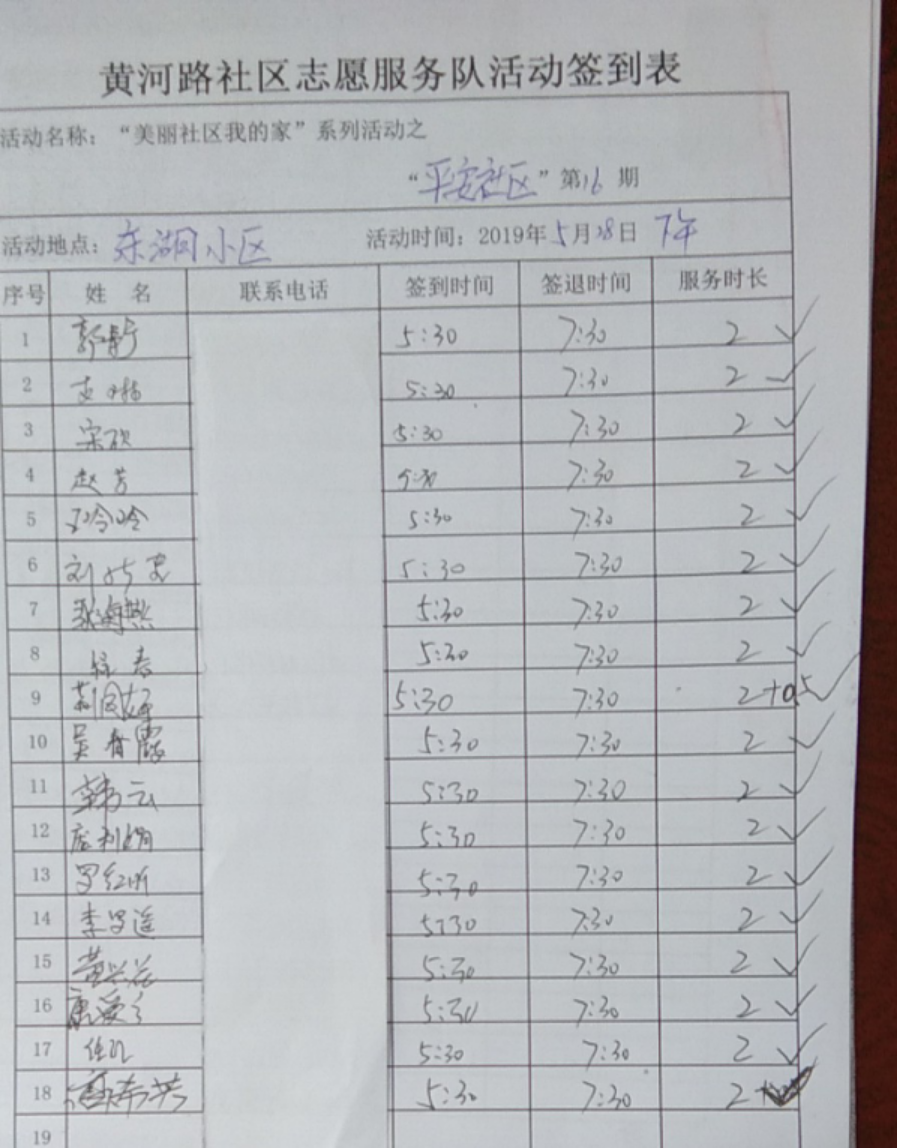 黄河路社区志愿服务队活动签到表
活动名称：“美丽社区我的家”系列活动之
“平安社区”第16期
活动地点：东湖小区 活动时间：2019年5月28日 下午
序号 姓名 联系电话 签到时间 签退时间 服务时长
1 5:30 7:30 2 ✓
2 5:30 7:30 2 ✓
3 5:30 7:30 2 ✓
4 赵芳 5:30 7:30 2 ✓
5 5:30 7:30 2 ✓
6 5:30 7:30 2 ✓
7 5:30 7:30 2 ✓
8 5:30 7:30 2 ✓
9 5:30 7:30 2+0.5 ✓
10 5:30 7:30 2 ✓
11 韩云 5:30 7:30 2 ✓
12 5:30 7:30 2 ✓
13 5:30 7:30 2 ✓
14 5:30 7:30 2 ✓
15 5:30 7:30 2 ✓
16 5:30 7:30 2 ✓
17 5:30 7:30 2 ✓
18 5:30 7:30 2
19